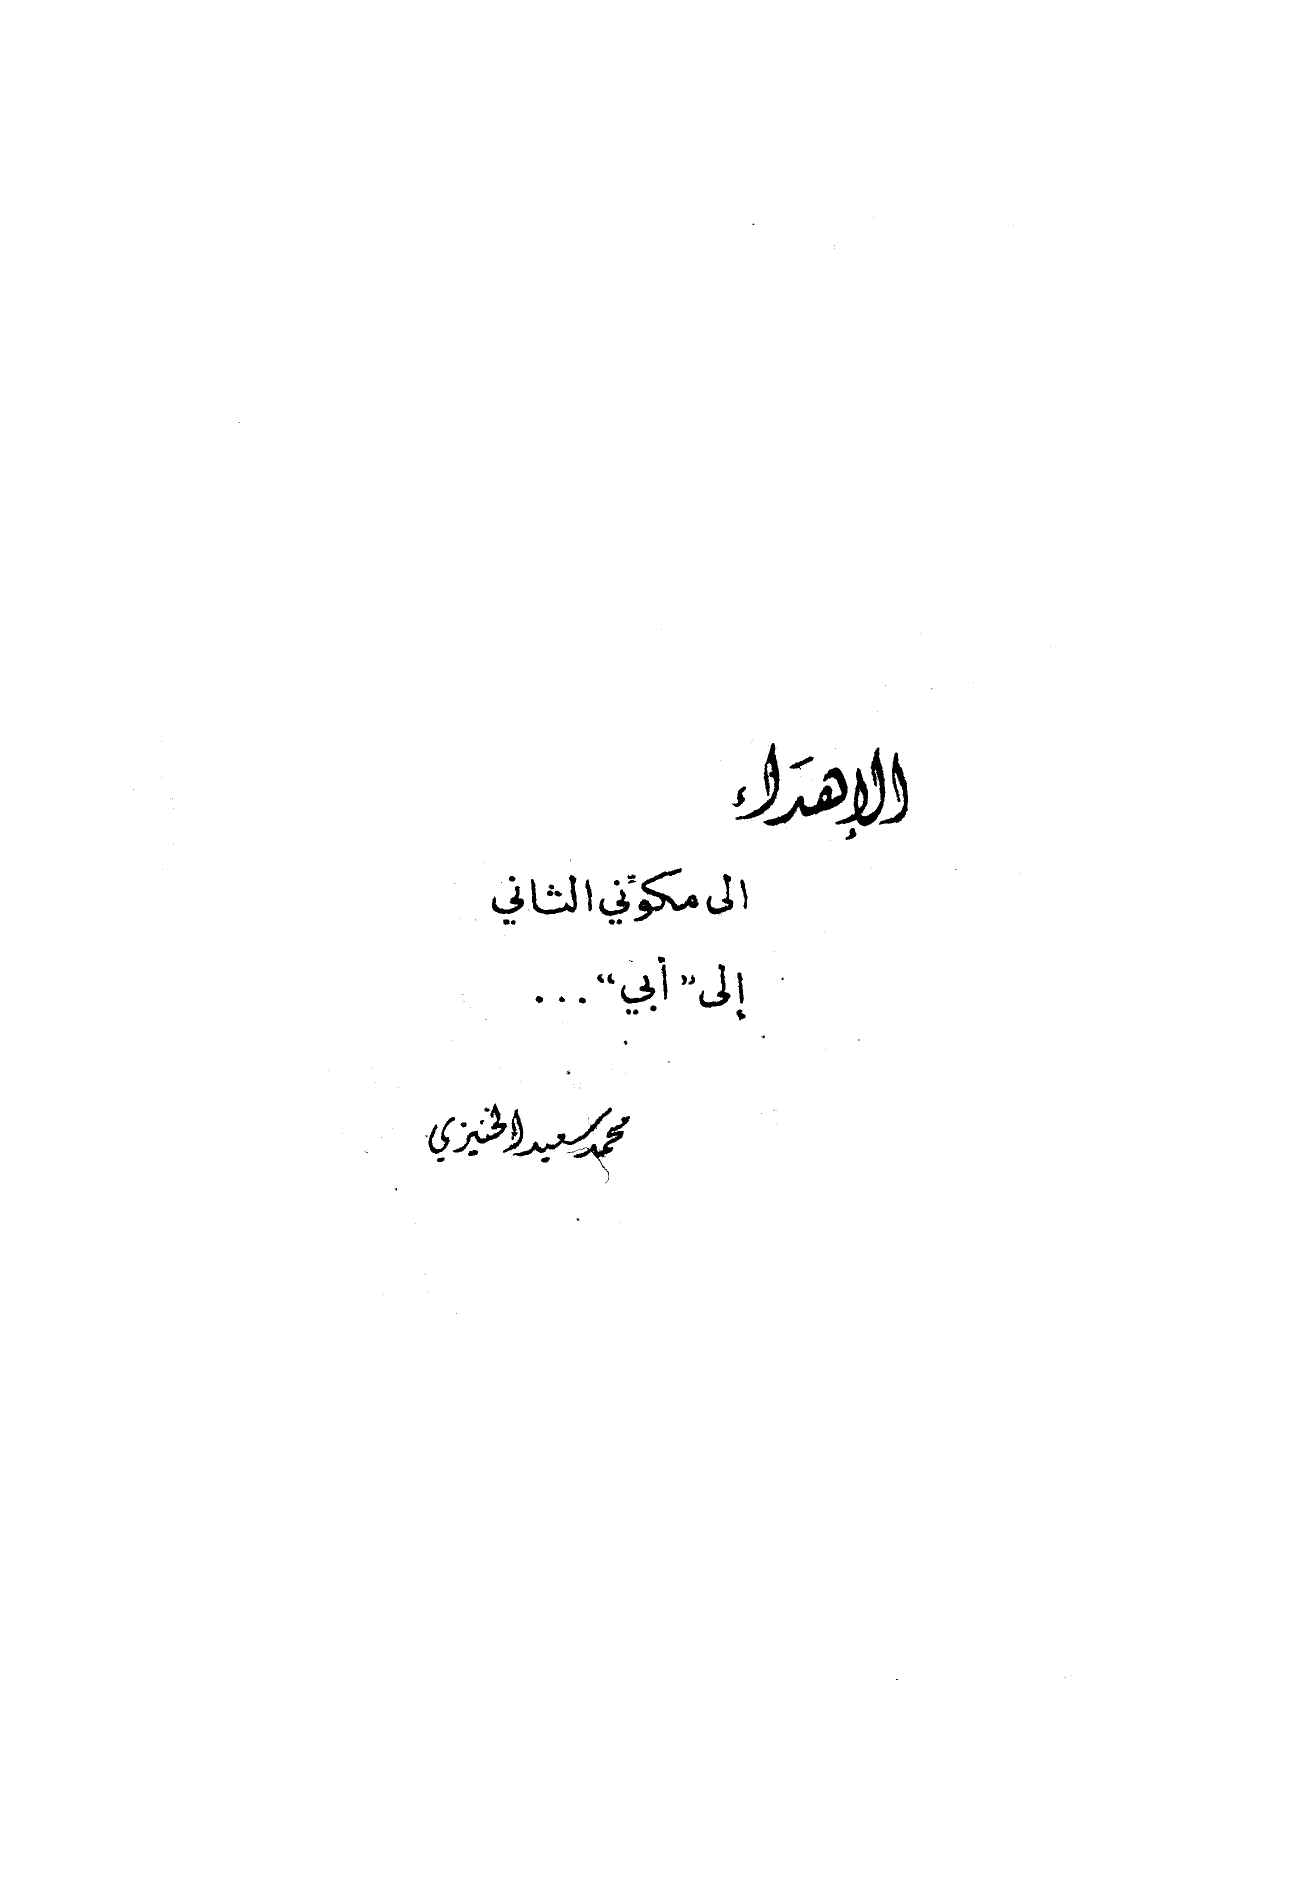 الإهدَاء
الى مكوّني الثاني
إلى "أبي" ...
محمد سعيد الخنيزي